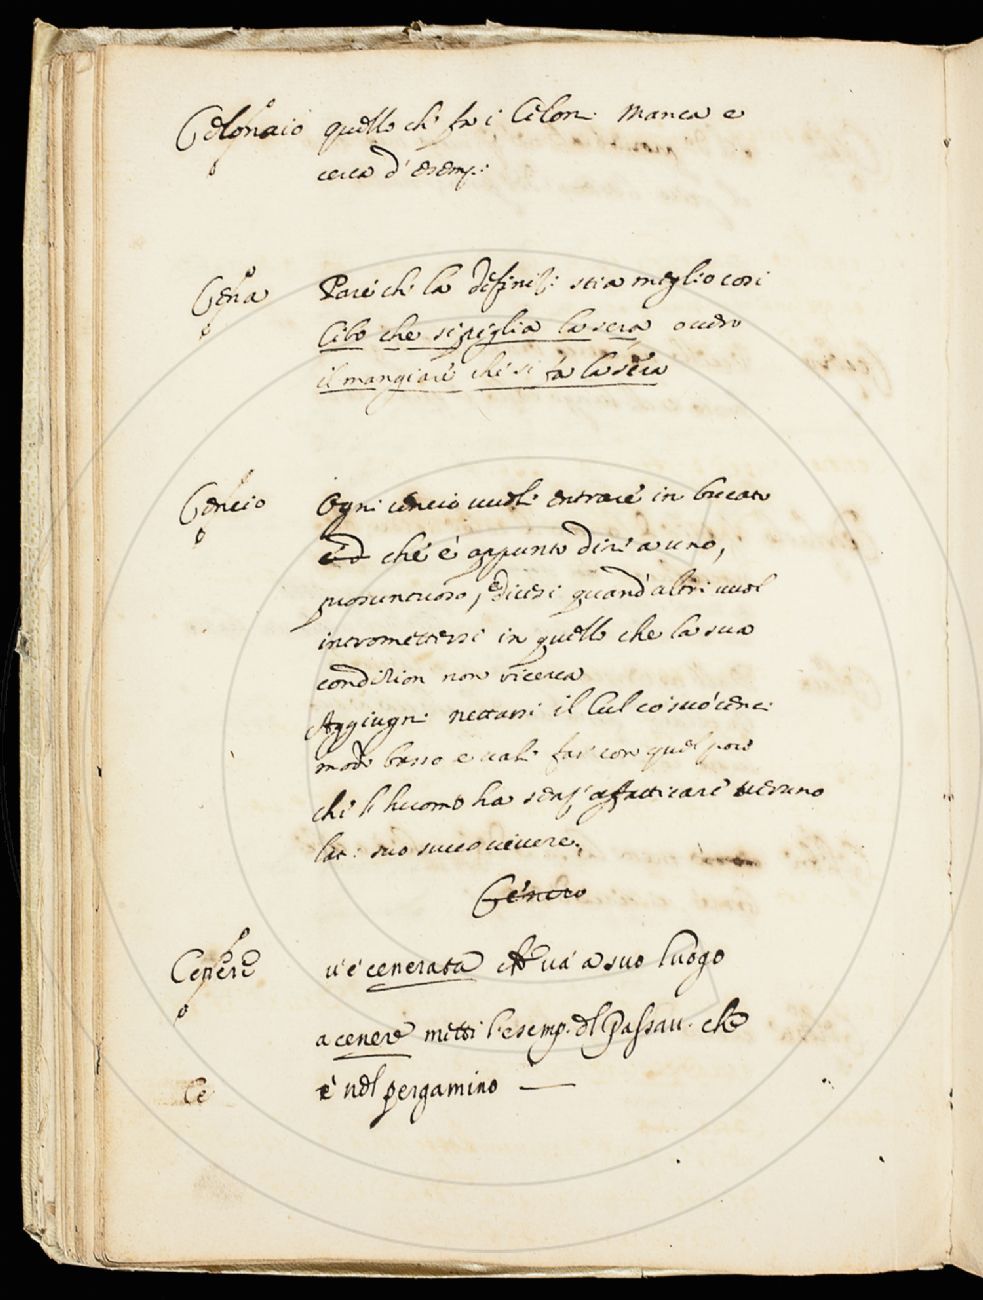 Celonaio quello ch' fa i Celoni Manca e
cerca d' esemp:
Cena Pare ch' la difiniz: stia meglio cosi
Cibo che si piglia la sera overo
il mangiare che si fa la sera
Cencio Ogni cencio vuol' entrare in bucato
ed che è appunto dire a uno,
prosuntuoso, e dicesi quand' altri vuol
intromettersi in quello che la sua
condizion non ricerca
Aggiugni nettarsi il Cul co' suo' cenci
modo basso e vale far con quel poco
che l' huomo ha senz' affatticare veruno
lat: suo succo vivere.
Centro
Cenere v' è cenerata che va a suo luogo
a cenere metti l' esemp. del Passav. che
è nel pergamino —
Ce